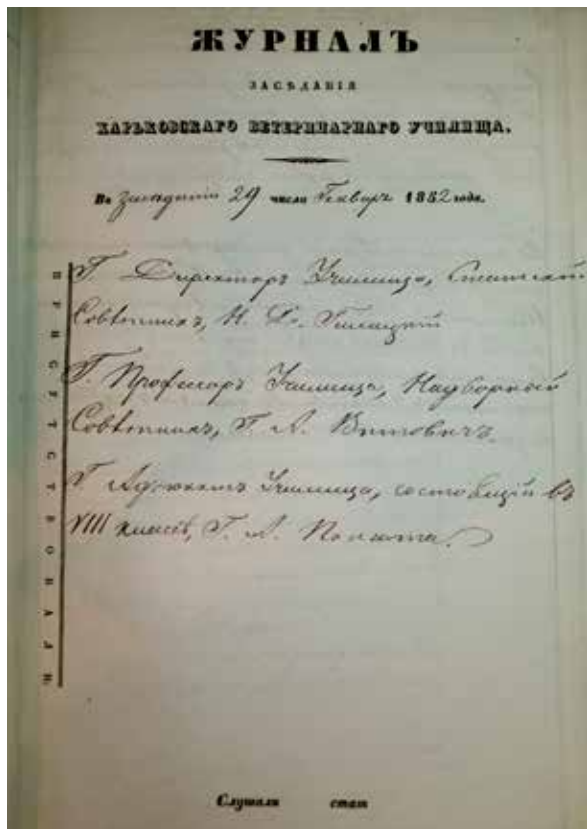 ЖУРНАЛЪ
ЗАСѢДАНІЯ
ХАРЬКОВСКАГО ВЕТЕРИНАРНАГО УЧИЛИЩА.
Въ Заседаніи 29 числа Генваря 1852 года.
ПРИСУТСТВОВАЛИ
Г. Директоръ Училища, Статскій
Совѣтникъ, Н. Д. Галицкій
Г. Профессоръ Училища, Надворный
Совѣтникъ, Г. А.
Г. Адъюнктъ Училища, состоящій въ
VIII классѣ, Г. А. Полюта.
Слушали стат